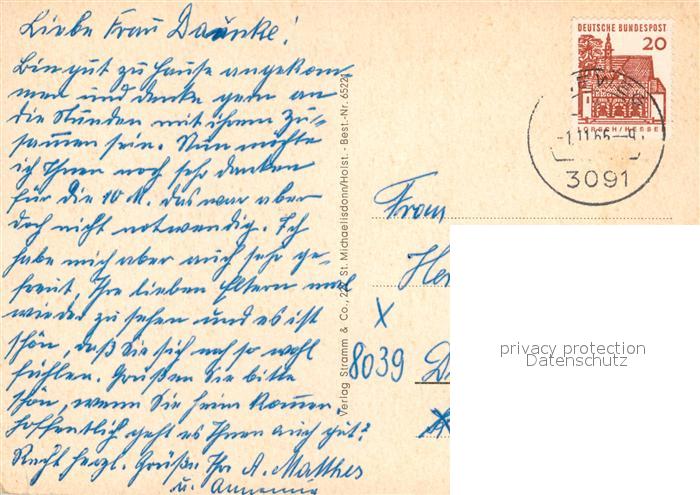 Liebe Frau Daunke!
Bin gut zu Hause angekom-
men und denke gern an
die Stunden mit ihrem Zu-
sammen sein. Nun möchte
ich Ihnen noch sehr danken
für die 10 M. das war aber
doch nicht notwendig. Ich
habe mich aber auch sehr ge-
freut, Ihre lieben Eltern mal
wieder zu sehen und es ist
schön, daß Sie sich noch so wohl
fühlen. Grüßen Sie bitte
schön, wenn Sie heim kommen.
Hoffentlich geht es Ihnen auch gut?
Recht herzl. Grüße Ihr A. Matthes
u.
Verlag Stramm & Co., 22 St. Michaelisdonn/Holst. - Best.-Nr. 65221
DEUTSCHE BUNDESPOST
20
LORSCH/HESSEN
-1.11.66--9
3091
Frau
He
X
8039 D
privacy protection
Datenschutz